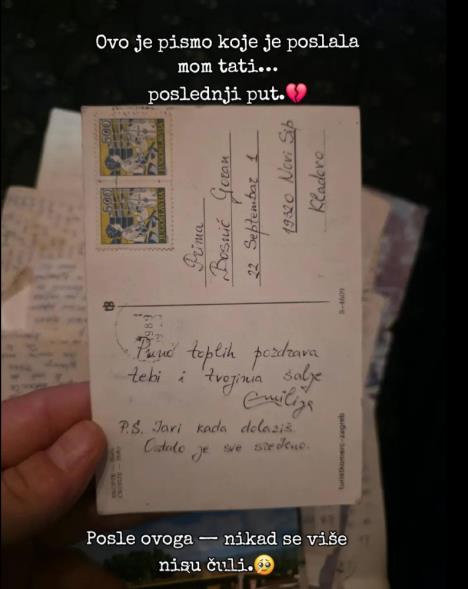 Ovo je pismo koje je poslala
mom tati...
poslednji put.💔
500
500
Prima
Bosnić Goran
22 Septembar 1
19320 Novi Sip
Kladovo
1989
S-4609
Puno toplih pozdrava
tebi i tvojima šalje
Emilija
P.S. Javi kada dolaziš.
Ostalo je sve sređeno.
turistkomerc-zagreb
Posle ovoga — nikad se više
nisu čuli.🥺